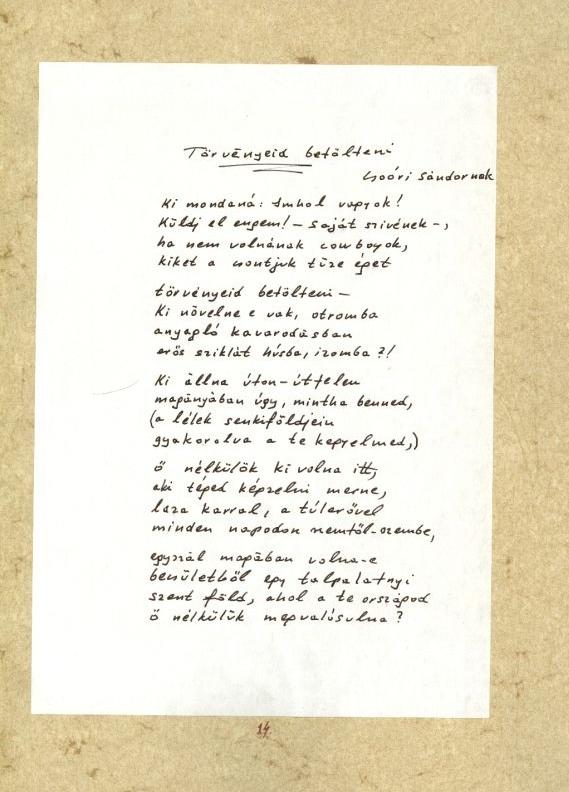 Törvényeid betölteni
Csoóri Sándornak
Ki mondaná: Imhol vagyok!
Küldj el engem! – saját szivének –,
ha nem volnának cowboyok,
kiket a csontjuk tüze éget
törvényeid betölteni –
Ki növelne e vak, otromba
anyagló kavarodásban
erős sziklát húsba, izomba?!
Ki állna úton-útfelen
magányában úgy, mintha benned,
(a lélek senkiföldjein
gyakorolva a te kegyelmed,)
ő nélkülök ki volna itt,
aki téged képzelni merne,
laza karral, a túlerővel
minden napodon szemtől-szembe,
egyszál magában volna-e
benületből egy talpalatnyi
szent föld, ahol a te országod
ő nélkülük megvalósulna?
14